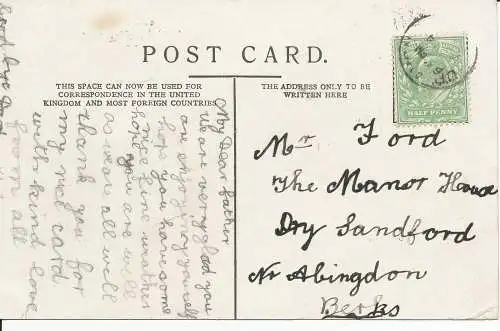 POST CARD.
THIS SPACE CAN NOW BE USED FOR
CORRESPONDENCE IN THE UNITED
KINGDOM AND MOST FOREIGN COUNTRIES
THE ADDRESS ONLY TO BE
WRITTEN HERE
HALF PENNY
Mr Ford
The Manor House
Dry Sandford
Nr Abingdon
Berks
My Dear father
we are very glad you
are enjoying yourself
hope you have some
nice fine weather
hope you are well
as we are all well
thank you for
my red card
with kind love
from all
Good bye Dad